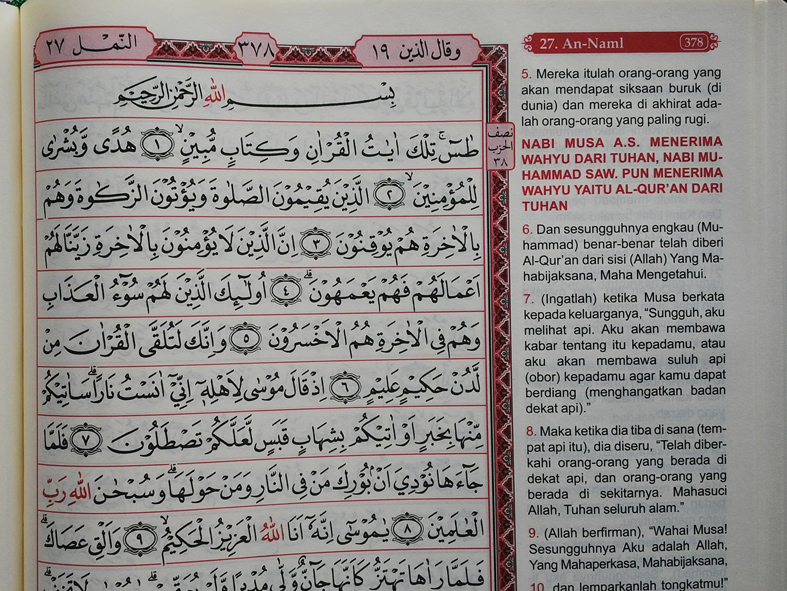 وقال الذين ١٩
٣٧٨
النمل ٢٧
بِسْمِ اللهِ الرَّحْمٰنِ الرَّحِيْمِ
طٰسۤ ۚ تِلْكَ اٰيٰتُ الْقُرْاٰنِ وَكِتَابٍ مُّبِيْنٍ ۙ ١ هُدًى وَّبُشْرٰى
لِلْمُؤْمِنِيْنَ ۙ ٢ الَّذِيْنَ يُقِيْمُوْنَ الصَّلٰوةَ وَيُؤْتُوْنَ الزَّكٰوةَ وَهُمْ
بِالْاٰخِرَةِ هُمْ يُوْقِنُوْنَ ٣ اِنَّ الَّذِيْنَ لَا يُؤْمِنُوْنَ بِالْاٰخِرَةِ زَيَّنَّا لَهُمْ
اَعْمَالَهُمْ فَهُمْ يَعْمَهُوْنَ ۗ ٤ اُولٰۤىِٕكَ الَّذِيْنَ لَهُمْ سُوْۤءُ الْعَذَابِ
وَهُمْ فِى الْاٰخِرَةِ هُمُ الْاَخْسَرُوْنَ ٥ وَاِنَّكَ لَتُلَقَّى الْقُرْاٰنَ مِنْ
لَّدُنْ حَكِيْمٍ عَلِيْمٍ ٦ اِذْ قَالَ مُوْسٰى لِاَهْلِهٖٓ اِنِّيْٓ اٰنَسْتُ نَارًاۗ سَاٰتِيْكُمْ
مِّنْهَا بِخَبَرٍ اَوْ اٰتِيْكُمْ بِشِهَابٍ قَبَسٍ لَّعَلَّكُمْ تَصْطَلُوْنَ ٧ فَلَمَّا
جَاۤءَهَا نُوْدِيَ اَنْۢ بُوْرِكَ مَنْ فِى النَّارِ وَمَنْ حَوْلَهَاۗ وَسُبْحٰنَ اللهِ رَبِّ
الْعٰلَمِيْنَ ٨ يٰمُوْسٰٓى اِنَّهٗٓ اَنَا اللهُ الْعَزِيْزُ الْحَكِيْمُ ۙ ٩ وَاَلْقِ عَصَاكَ ۗ
فَلَمَّا رَاٰهَا تَهْتَزُّ كَاَنَّهَا جَاۤنٌّ وَّلّٰى مُدْبِرًا وَّلَمْ يُعَقِّبْۗ يٰمُوْسٰى لَا تَخَفْۗ
نصف
الحزب
٣٨
27. An-Naml 378
5. Mereka itulah orang-orang yang
akan mendapat siksaan buruk (di
dunia) dan mereka di akhirat ada-
lah orang-orang yang paling rugi.
NABI MUSA A.S. MENERIMA
WAHYU DARI TUHAN, NABI MU-
HAMMAD SAW. PUN MENERIMA
WAHYU YAITU AL-QUR'AN DARI
TUHAN
6. Dan sesungguhnya engkau (Mu-
hammad) benar-benar telah diberi
Al-Qur'an dari sisi (Allah) Yang Ma-
habijaksana, Maha Mengetahui.
7. (Ingatlah) ketika Musa berkata
kepada keluarganya, "Sungguh, aku
melihat api. Aku akan membawa
kabar tentang itu kepadamu, atau
aku akan membawa suluh api
(obor) kepadamu agar kamu dapat
berdiang (menghangatkan badan
dekat api)."
8. Maka ketika dia tiba di sana (tem-
pat api itu), dia diseru, "Telah diber-
kahi orang-orang yang berada di
dekat api, dan orang-orang yang
berada di sekitarnya. Mahasuci
Allah, Tuhan seluruh alam."
9. (Allah berfirman), "Wahai Musa!
Sesungguhnya Aku adalah Allah,
Yang Mahaperkasa, Mahabijaksana,
10. dan lemparkanlah tongkatmu!"